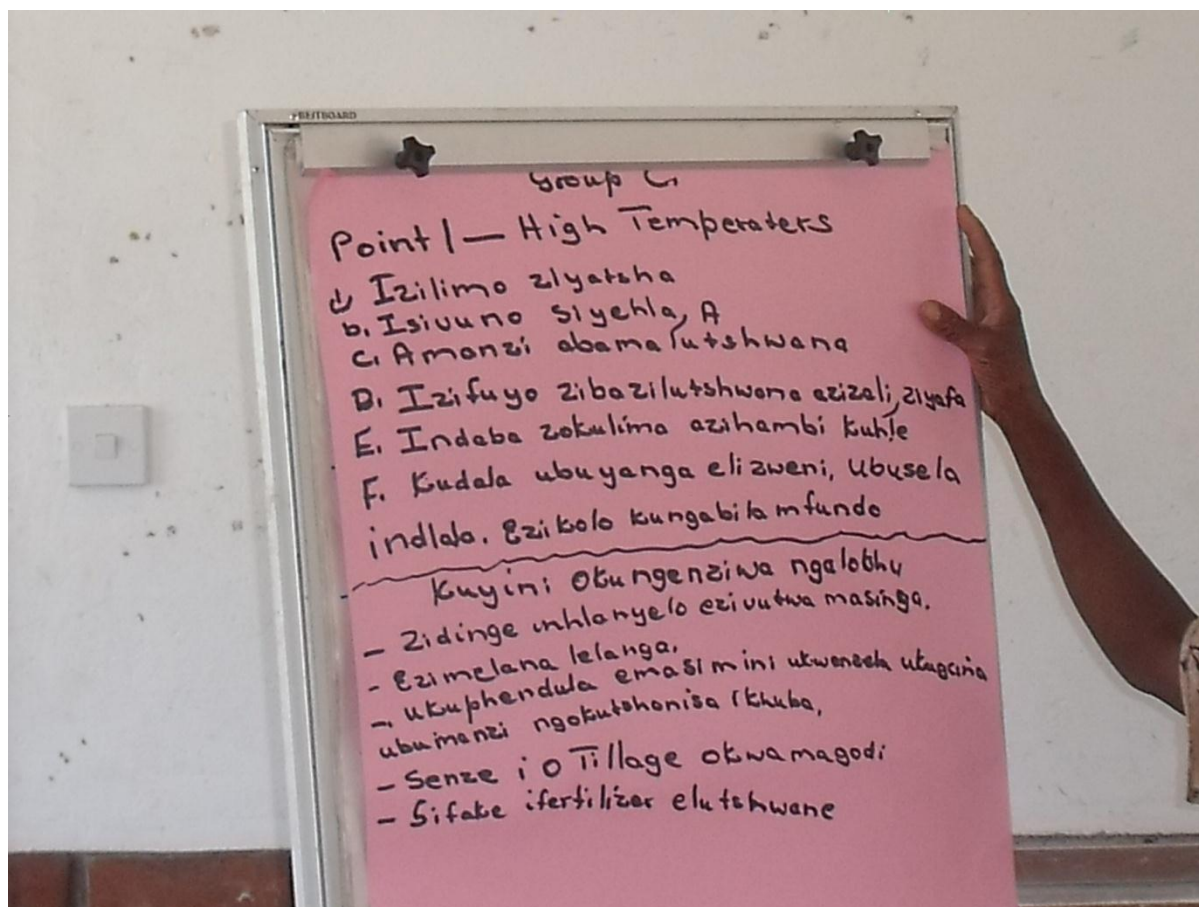 BEITBOARD
Group C.
Point 1 — High Temperaters
Izilimo ziyatsha
b. Isivuno siyehla, A
C. Amanzi abamalutshwana
D. Izifuyo zibazilutshwana azizali, ziyafa
E. Indaba zokulima azihambi kuhle
F. Kudala ubuyanga elizweni, ubusela
indlala. Ezikolo kungabilamfundo
Kuyini okungenziwa ngalokhu
- Zidinge inhlanyelo ezivutwa masinga.
- Ezimelana lelanga.
- ukuphendula emasimini ukwenzela ukugcina
ubumanzi ngokutshonisa ikhuba,
- Senze i o Tillage okwamagodi
- Sifake ifertilizer elutshwane